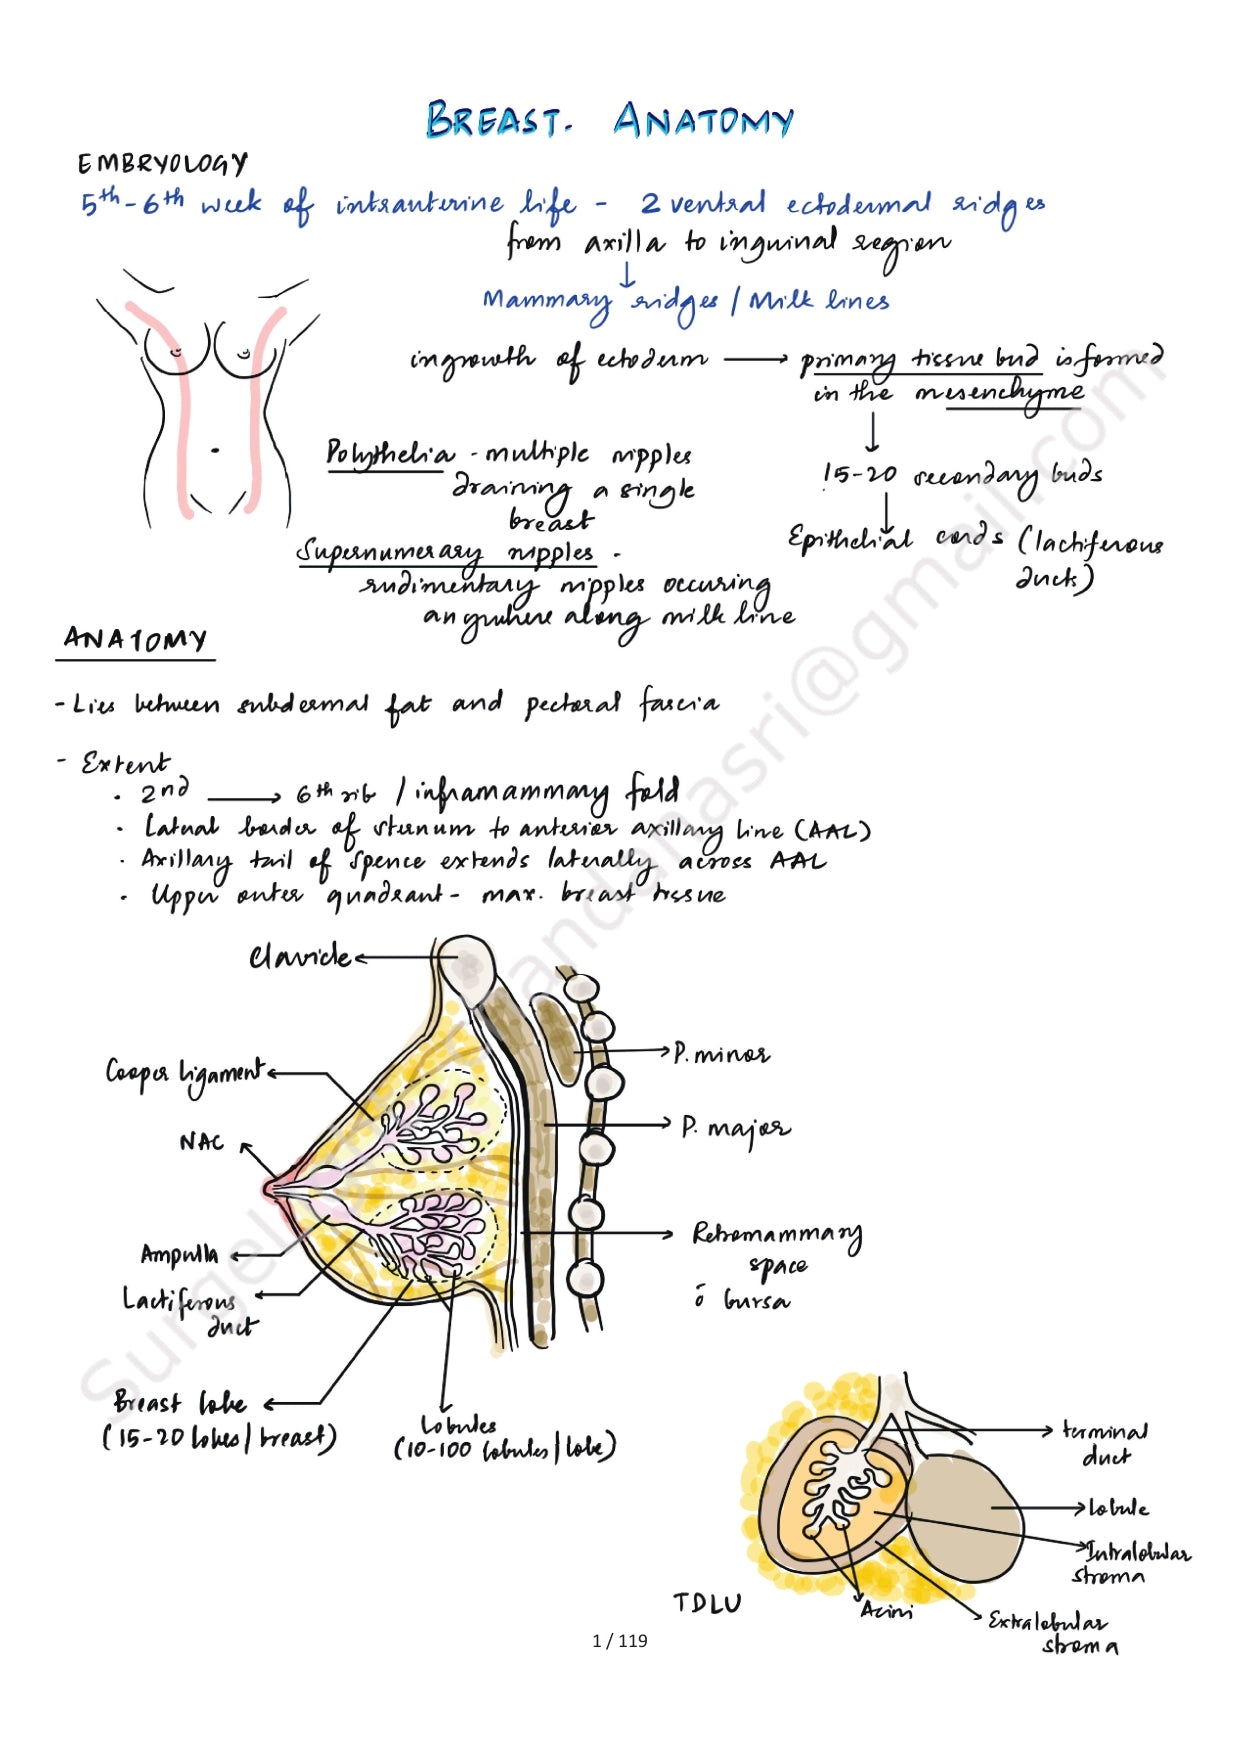 BREAST. ANATOMY
EMBRYOLOGY
5th-6th week of intrauterine life - 2 ventral ectodermal ridges
from axilla to inguinal region
↓
Mammary ridges / Milk lines
ingrowth of ectoderm → primary tissue bud is formed
in the mesenchyme
↓
15-20 secondary buds
↓
Epithelial cords (lactiferous
ducts)
Polythelia - multiple nipples
draining a single
breast
Supernumerary nipples -
rudimentary nipples occuring
anywhere along milk line
ANATOMY
- Lies between subdermal fat and pectoral fascia
- Extent
. 2nd → 6th rib / inframammary fold
. Lateral border of sternum to anterior axillary line (AAL)
. Axillary tail of Spence extends laterally across AAL
. Upper outer quadrant - max. breast tissue
Clavicle
Cooper ligament
NAC
Ampulla
Lactiferous
duct
Breast lobe
(15-20 lobes/breast)
Lobules
(10-100 lobules/lobe)
P. minor
P. major
Retromammary
space
c̄ bursa
terminal
duct
Lobule
Intralobular
stroma
Extralobular
stroma
Acini
TDLU
1 / 119
andanasri@gmail.com